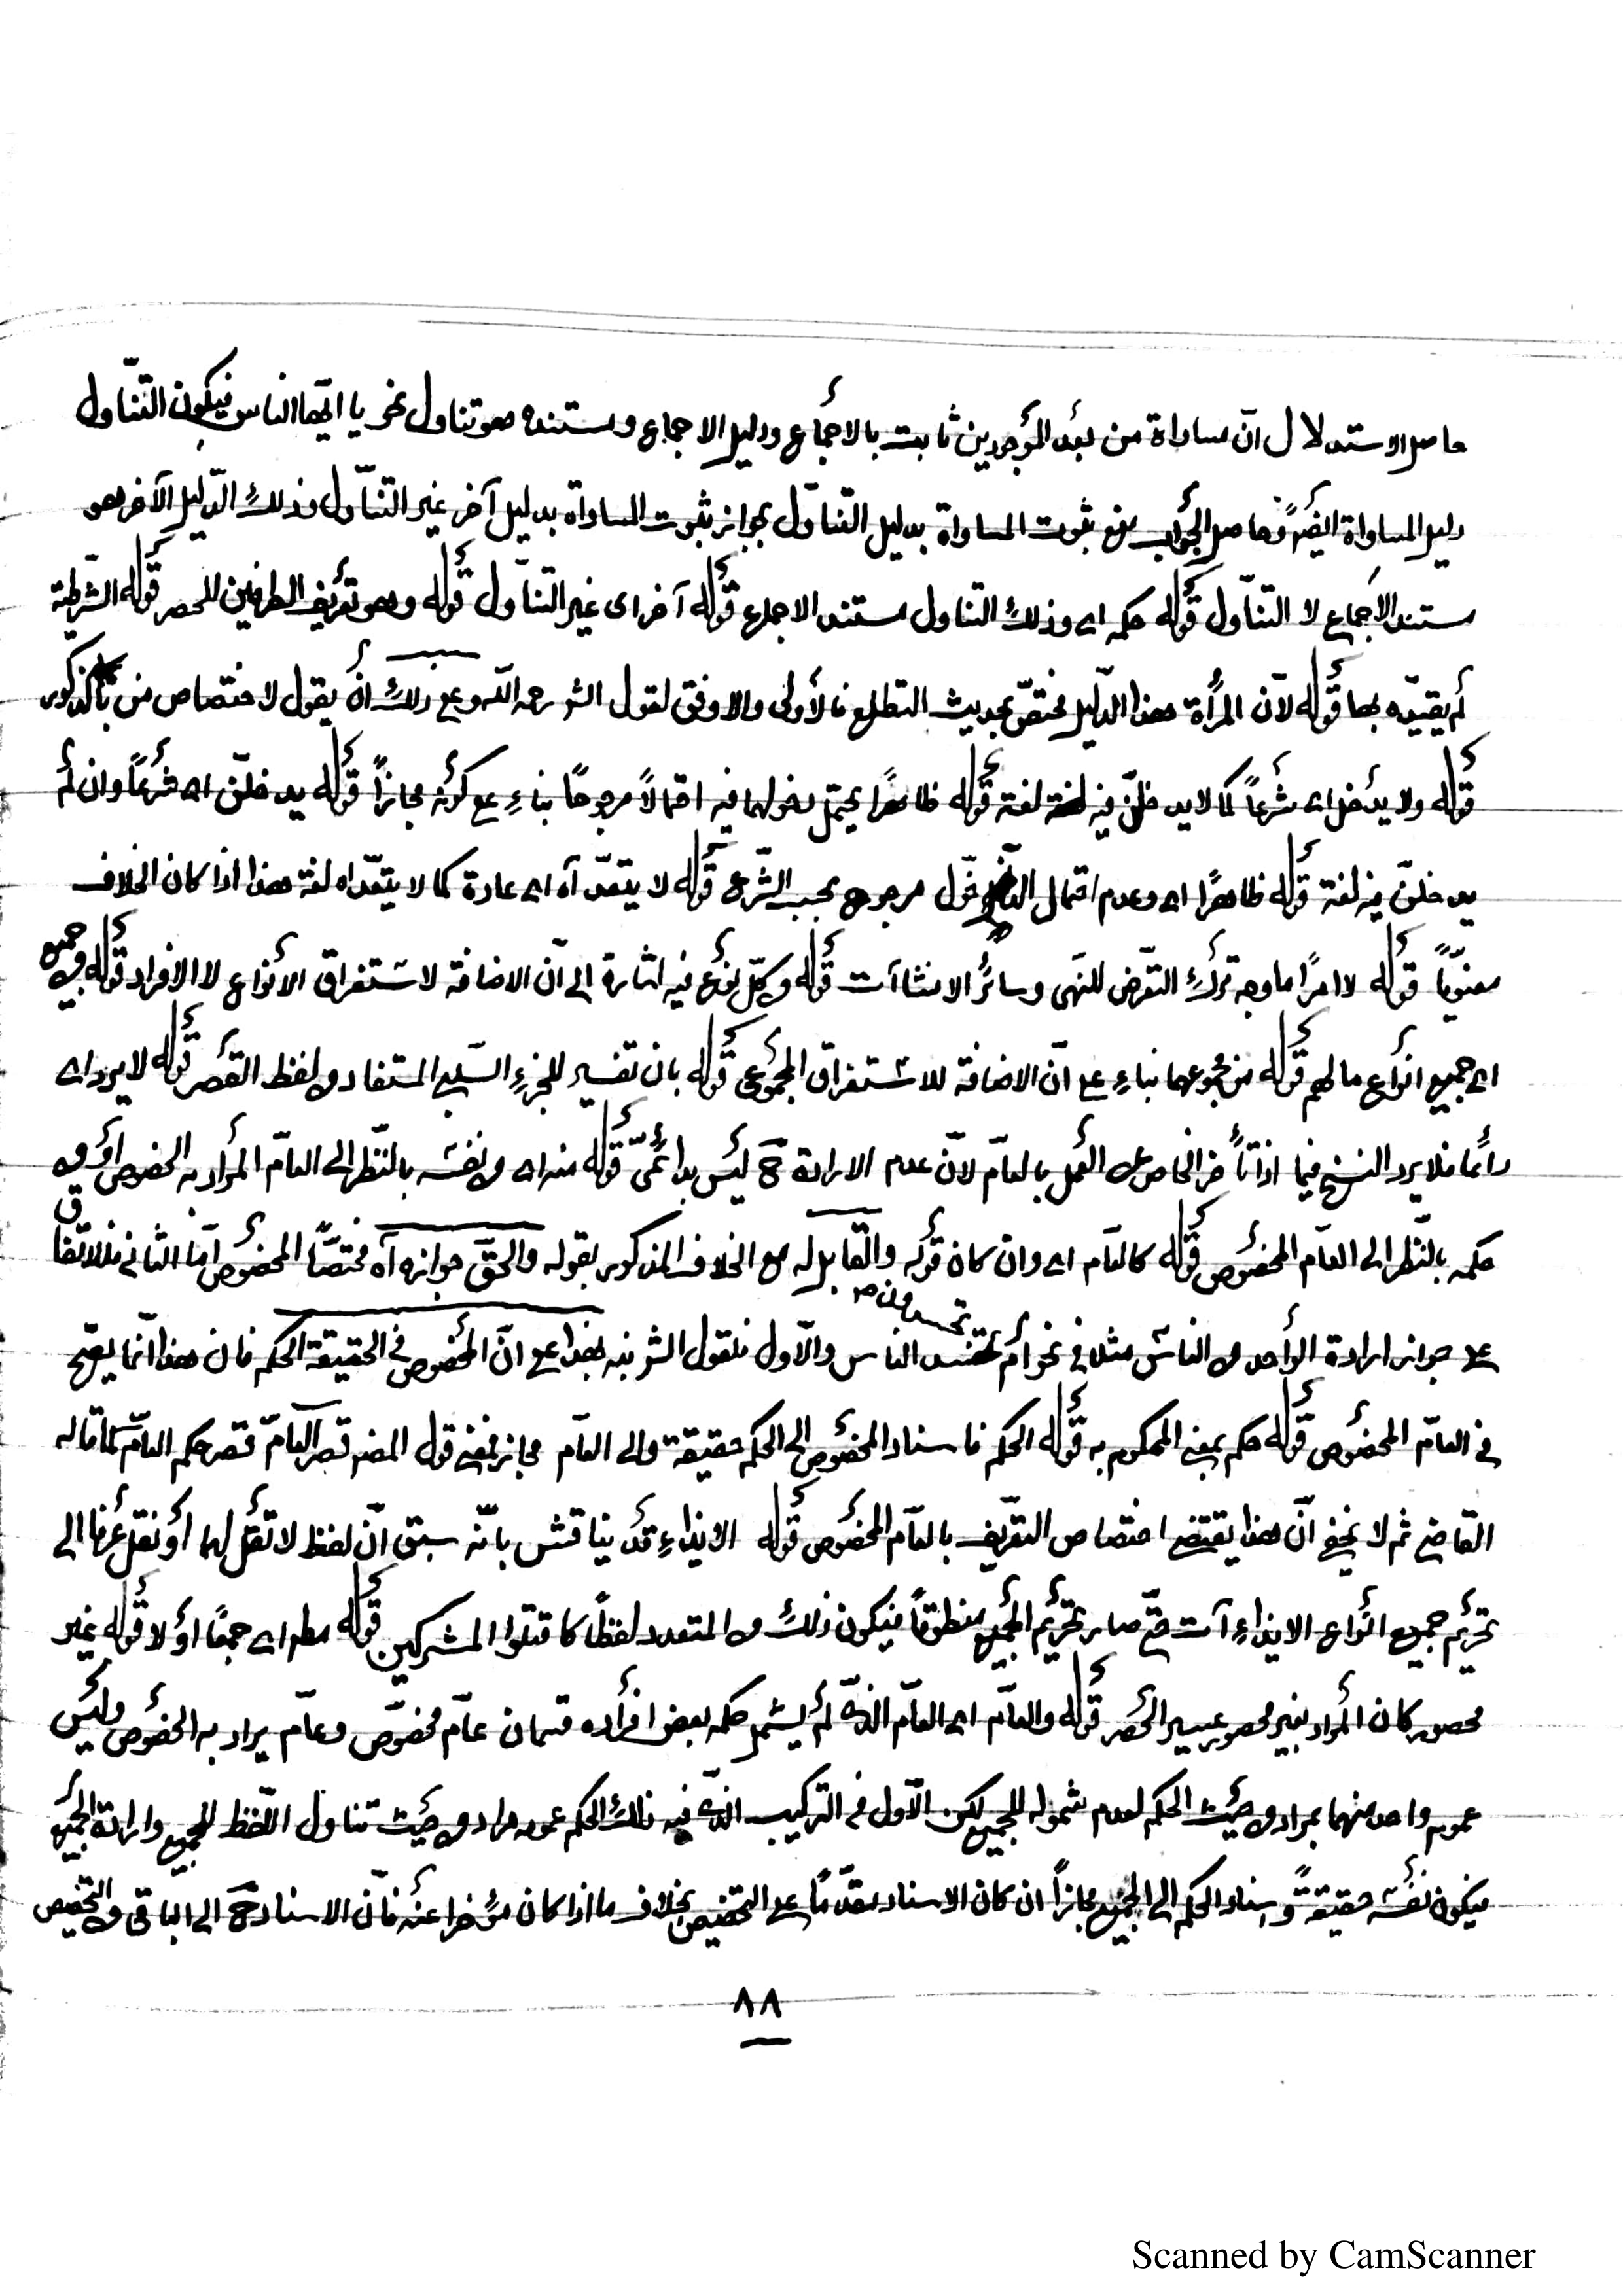 حاصل الاستدلال انّ مساواة من بعد المؤجودين ثابت بالاجماع ودليل الاجماع ومستنده هو تناول نحو يا ايّها الناس فيكون التّناول
دليل المساواة ايضًا وحاصل الجواب منع ثبوت المساواة بدليل التّناول بجواز ثبوت المساواة بدليل آخر غير التناول وذلك الدّليل الآخر هو
مستند الاجماع لا التّناول قوله حكمه اى وذلك التناول مستند الاجماع قوله آخر اى غير التناول قوله وهو تعريف الطرفين للحصر قوله الشّرطية
لم يقيّده بها قوله لانّ المرأة هذا الدّليل مختصّ بحديث التطلع فالأولى والاوفق لقول الشر رحمه الله وعلى ذلك ان يقول لاختصاص من بالذكور
قوله ولا يدخل اى شرعًا كما لا يدخلن فيه لغة قوله ظاهرًا يحتمل دخولها فيه احتمالًا مرجوحًا بناءً على كونه مجازًا قوله يدخلن اى شرعًا وان لم
يدخلن فيه لغة قوله ظاهرًا اى وعدم احتمال الدّخول مرجوح بحسب الشّرع قوله لا يتعدّاه اى عادة كما لا يتعدّاه لغة هذا اذا كان الخلاف
معنويًّا قوله لا امرًا ما وجه ترك التعرّض للنّهى وسائر الانشاآت قوله وكلّ نوع فيه اشارة الى انّ الاضافة لاستغراق الأنواع لا الافراد قوله من جميع
اى جميع انواع مالهم قوله من مجموعها بناءً على انّ الاضافة للاستغراق المجموعى قوله بان تفسير للجزء السّلبى المستفاد من لفظ القصر قوله لا يرد اى
دائمًا فلا يرد النسخ فيما اذا تأخر الخاص عن العمل بالعامّ لانّ عدم الارادة ح ليس بدائمىّ قوله منه اى من نفسه بالنّظر الى العامّ المراد به الخصوص او من
حكمه بالنّظر الى العامّ المخصوص قوله كالعام اى وان كان قوله والقابل له مع الخلاف المذكور بقوله والحقّ جوازه آه مختصًّا المخصوص امّا الثانى فللاتفاق
على جواز ارادة الواحد من الناس مثلا فى نحو ام يحسدون الناس والاول فلقول الشر فيه بهذا على انّ المخصوص فى الحقيقة الحكم فان هذا انّما يصحّ
فى العامّ المخصوص قوله حكم بمعنى المحكوم به قوله الحكم فاسناد المخصوص الى الحكم حقيقة والى العام مجاز فمعنى قول المصـ قصر العامّ قصر حكم العامّ كما قاله
القاضى ثم لا يخفى انّ هذا يقتضى اختصاص التعريف بالعامّ المخصوص قوله الايذاء قد يناقش بانّه سبق انّ لفظ لا تقل لهما اف نقل عرفًا الى
تحريم جميع انواع الايذاءآت حتّى صار تحريم الجميع منطوقًا فيكون ذلك من المتعدد لفظًا كاقتلوا المشركين قوله مطـ اى جمعًا اولا قوله غير
محصور كان المراد بغير محصور عسير الحصر قوله والعام اى العامّ الذى لم يشمل حكمه بعض افراده قسمان عامّ مخصوص وعامّ يراد به الخصوص وليس
عموم واحد منهما بمراد من حيث الحكم لعدم شموله للجميع لكن الاول فى التركيب الذى فيه ذلك الحكم عمومه مراد من حيث تناول اللّفظ للجميع وارادة الجميع
فيكون نفسه حقيقةً واسناد الحكم الى الجميع مجازًا ان كان الاسناد مقدّمًا على التخصيص بخلاف ما اذا كان مؤخرا عنه فانّ الاسناد ح الى الباقى والتخصيص
٨٨
Scanned by CamScanner